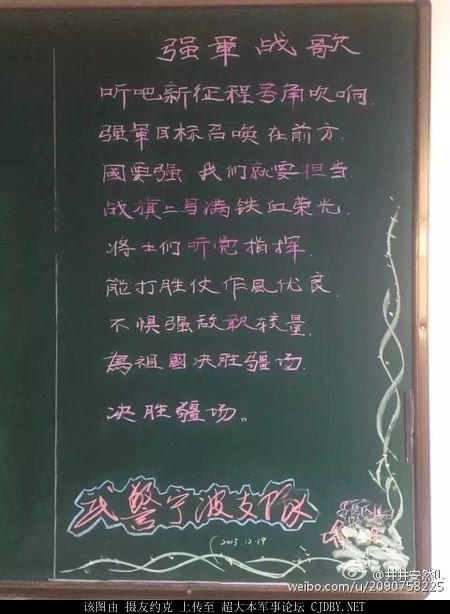 强軍战歌
听吧新征程号角吹响.
强軍目标召唤在前方.
國要强 我们就要担当
战旗上写满铁血荣光.
将士们听党指挥.
能打胜仗作風优良.
不惧强敌敢较量.
為祖國决胜疆场.
决胜疆场。
武警宁波支队
2015.12.19
@井井安然0L
weibo.com/u/2090758225
该图由 摄友约克 上传至 超大本军事论坛 CJDBY.NET